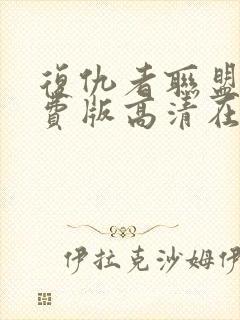 復仇者聯盟
費版高清在
伊拉克沙姆伊